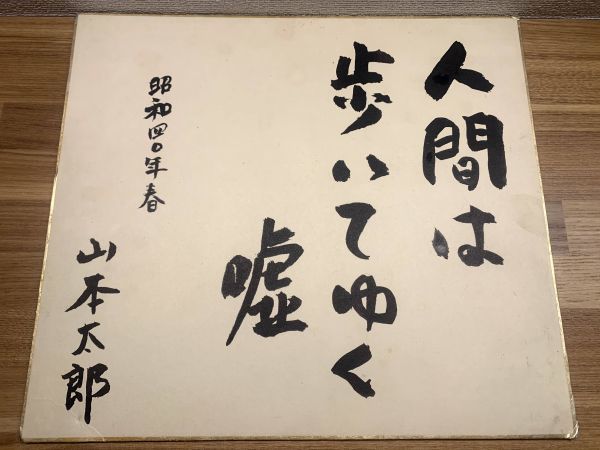 人間は
歩いてゆく
嘘
昭和四〇年春
山本太郎